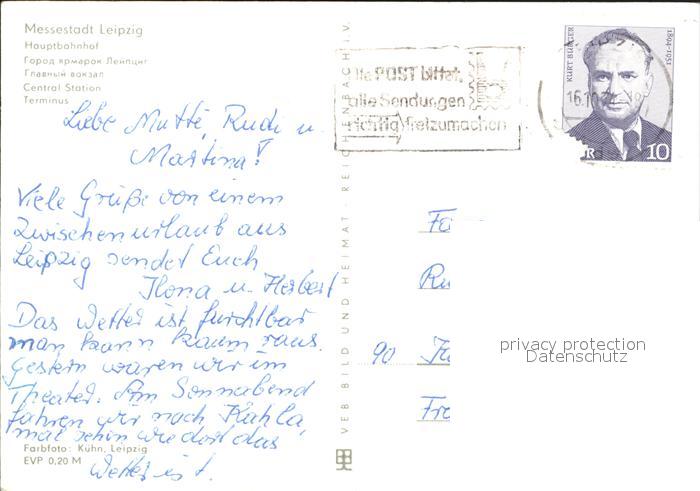 Messestadt Leipzig
Hauptbahnhof
Город ярмарок Лейпциг
Главный вокзал
Central Station
Terminus
Liebe Mutti, Rudi u.
Martina!
Viele Grüße von einem
Zwischenurlaub aus
Leipzig sendet Euch
Ilona u. Herbert
Das Wetter ist furchtbar
man kann kaum raus.
Gestern waren wir im
Theater. Am Sonnabend
fahren wir nach Kahla,
mal sehn wie dort das
Wetter ist.
Farbfoto: Kühn, Leipzig
EVP 0,20 M
VEB BILD UND HEIMAT · REICHENBACH I. V.
Die POST bittet,
alle Sendungen
richtig freizumachen
KURT BÜRGER
1894-1951
16.10.
DDR 10
Fa
Ru
90 Ju
Fre
privacy protection
Datenschutz